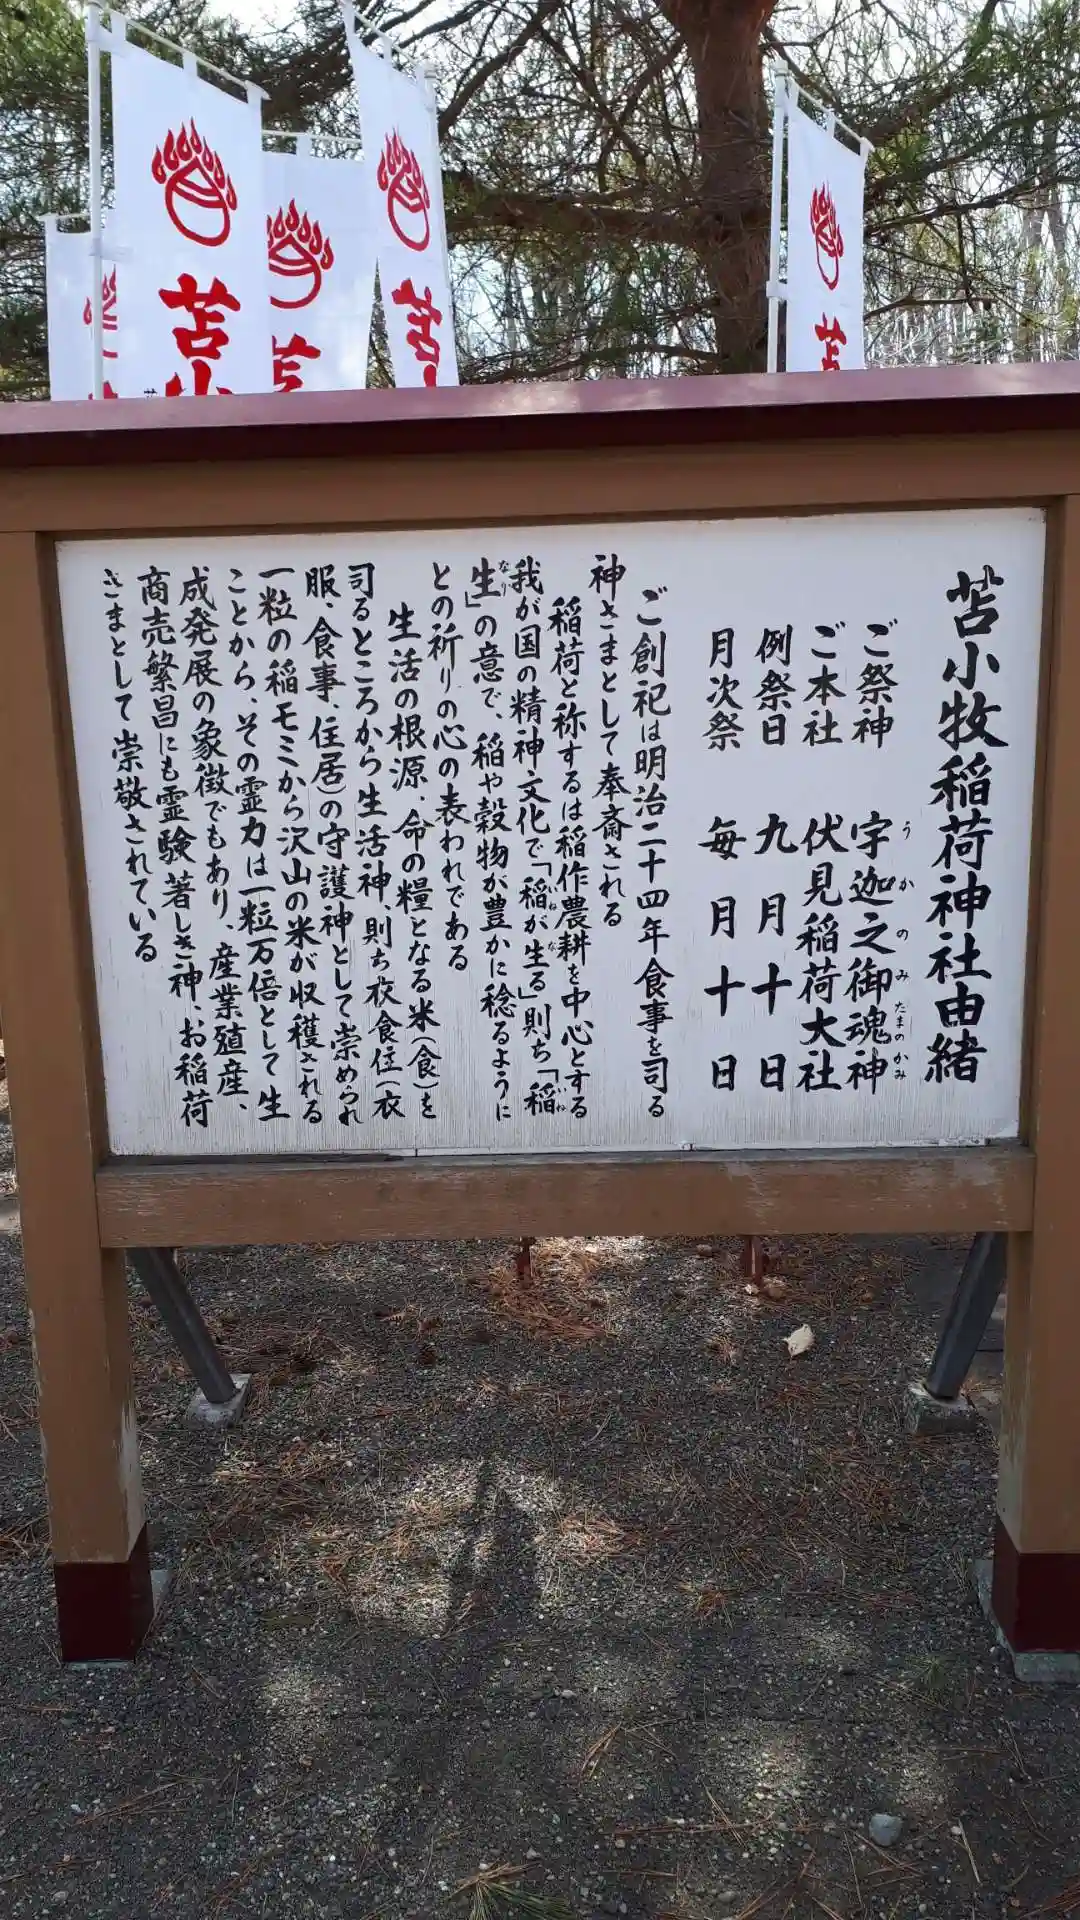 苫小牧稲荷神社由緒
ご祭神 宇迦之御魂神
うかのみたまのかみ
ご本社 伏見稲荷大社
例祭日 九月十日
月次祭 毎月十日
ご創祀は明治二十四年食事を司る
神さまとして奉斎される
稲荷と称するは稲作農耕を中心とする
我が国の精神文化で「稲が生る」則ち「稲
いね な いね
生」の意で、稲や穀物が豊かに稔るように
なり
との祈りの心の表われである
生活の根源、命の糧となる米(食)を
司るところから生活神、則ち衣食住(衣
服、食事、住居)の守護神として崇められ
一粒の稲モミから沢山の米が収穫される
ことから、その霊力は一粒万倍として生
成発展の象徴でもあり、産業殖産、
商売繁昌にも霊験著しき神、お稲荷
さまとして崇敬されている
苫小
苫
苫
苫